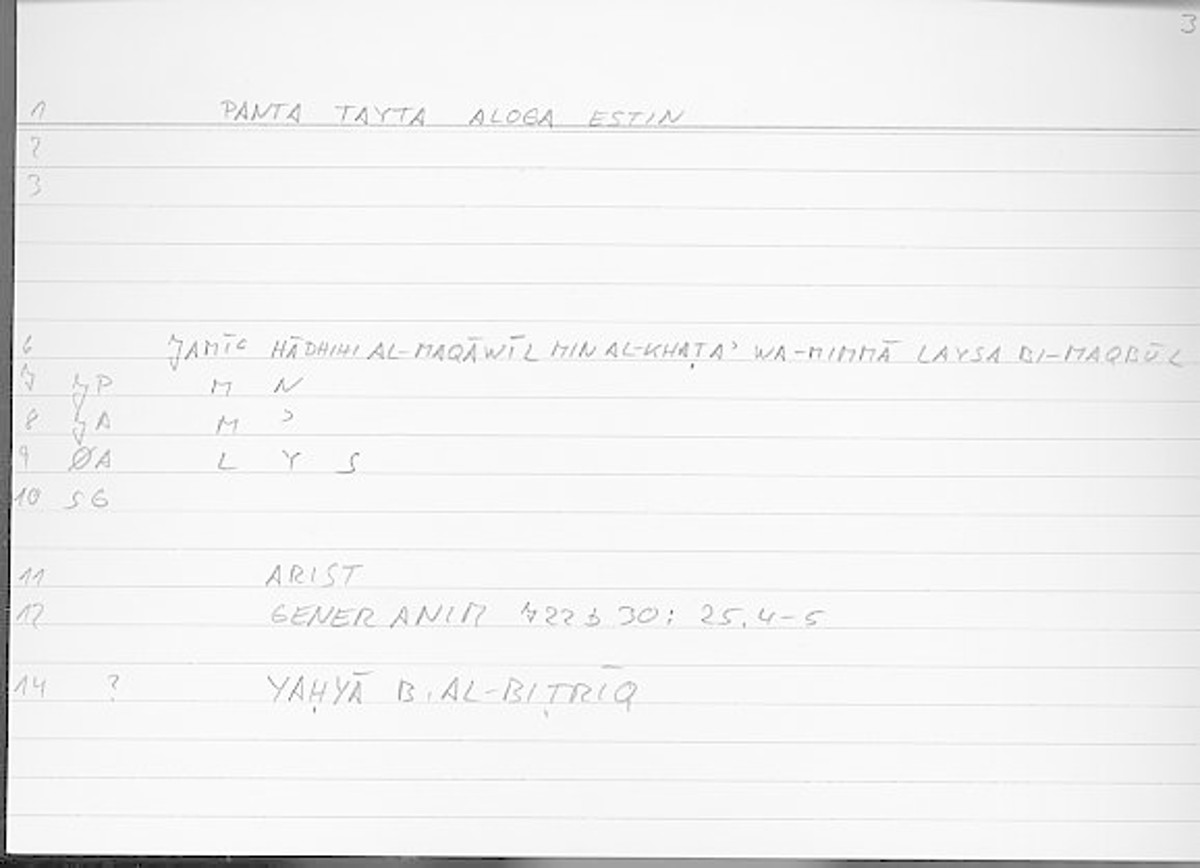 3
1 PANTA TAYTA ALOGA ESTIN
2
3
6 JAMĪC HĀDHIHI AL-MAQĀWĪL MIN AL-KHAṬAʾ WA-MIMMĀ LAYSA BI-MAQBŪL
7 JP M N
8 JA M ʾ
9 ØA L Y S
10 SG
11 ARIST
12 GENER ANIM 722b 30: 25.4-5
14 ? YAḤYĀ B. AL-BIṬRĪQ